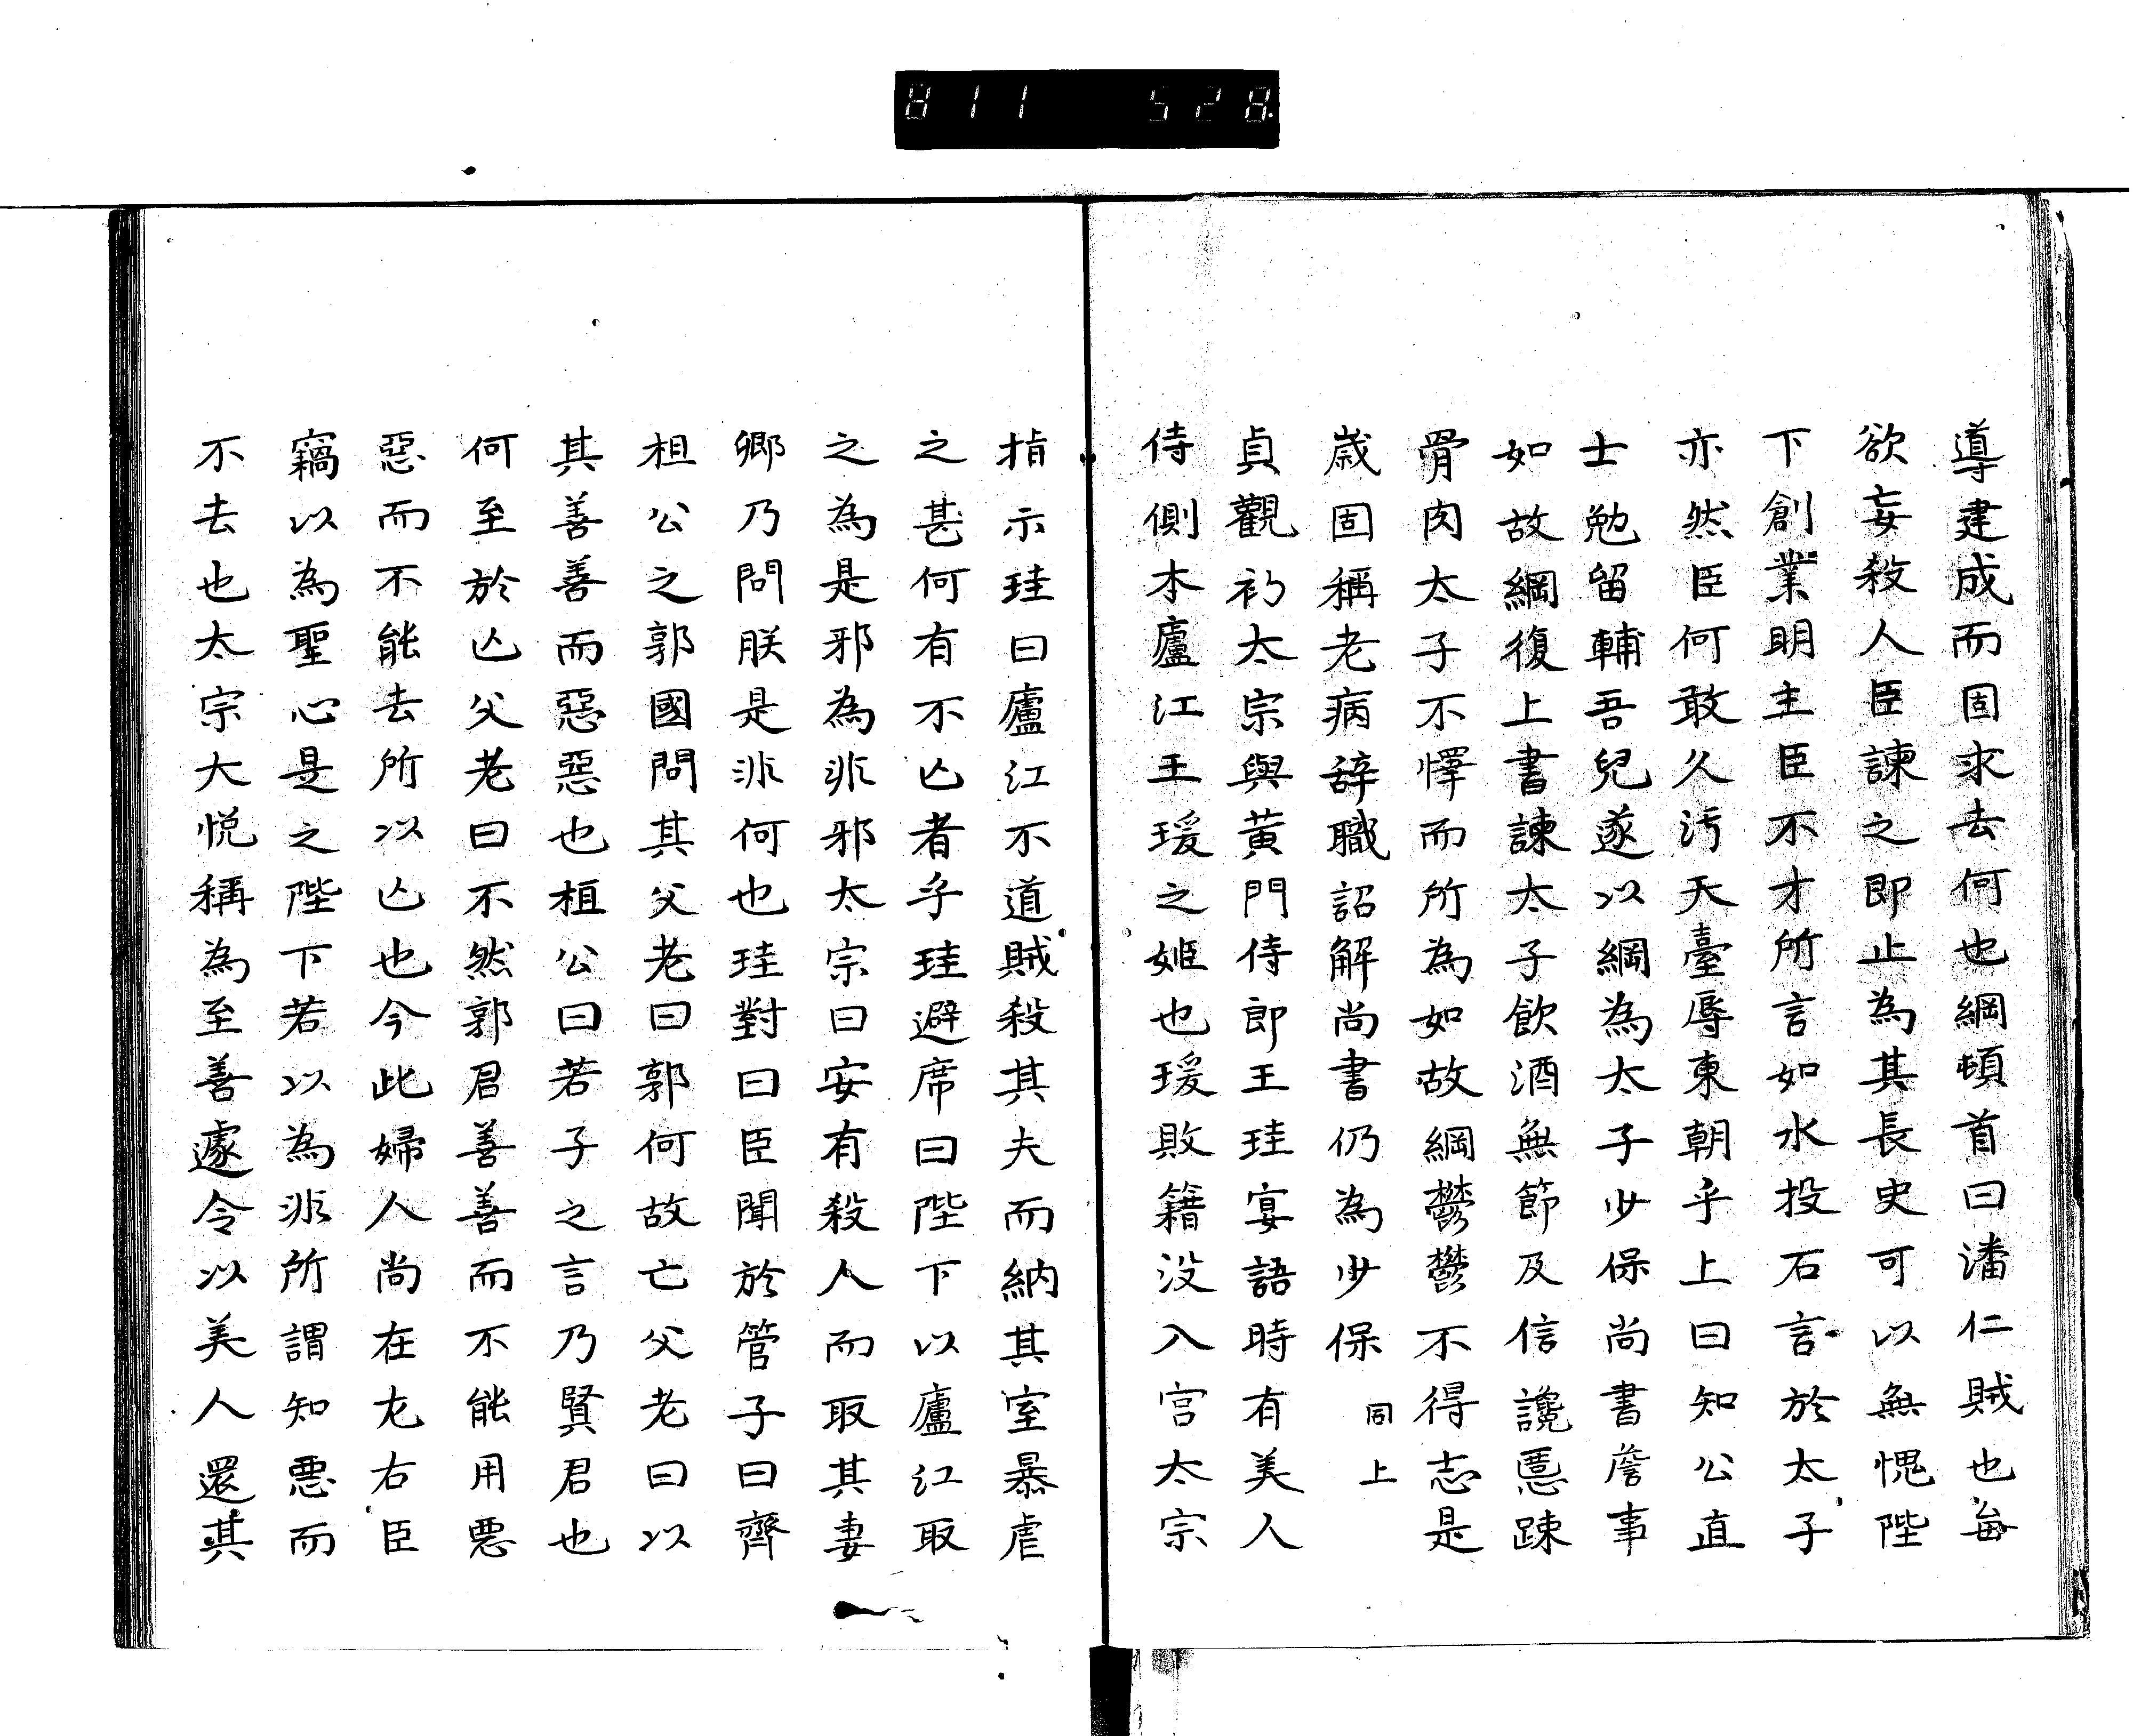 811 528
導建成而固求去何也綱頓首曰潘仁賊也每
欲妄殺人臣諫之即止為其長史可以無愧陛
下創業明主臣不才所言如水投石言於太子
亦然臣何敢久污天臺辱東朝乎上曰知公直
士勉留輔吾兒遂以綱為太子少保尚書詹事
如故綱復上書諫太子飲酒無節及信讒慝踈
骨肉太子不懌而所為如故綱鬱鬱不得志是
歲固稱老病辞職詔解尚書仍為少保 同上
貞觀初太宗與黃門侍郎王珪宴語時有美人
侍側本廬江王瑗之姬也瑗敗籍没入宫太宗
指示珪曰廬江不道賊殺其夫而納其室暴虐
之甚何有不亾者乎珪避席曰陛下以廬江取
之為是邪為非邪太宗曰安有殺人而取其妻
卿乃問朕是非何也珪對曰臣聞於管子曰齊
桓公之郭國問其父老曰郭何故亡父老曰以
其善善而惡惡也桓公曰若子之言乃賢君也
何至於亾父老曰不然郭君善善而不能用悪
惡而不能去所以亾也今此婦人尚在左右臣
竊以為聖心是之陛下若以為非所謂知悪而
不去也太宗大悦稱為至善遽令以美人還其